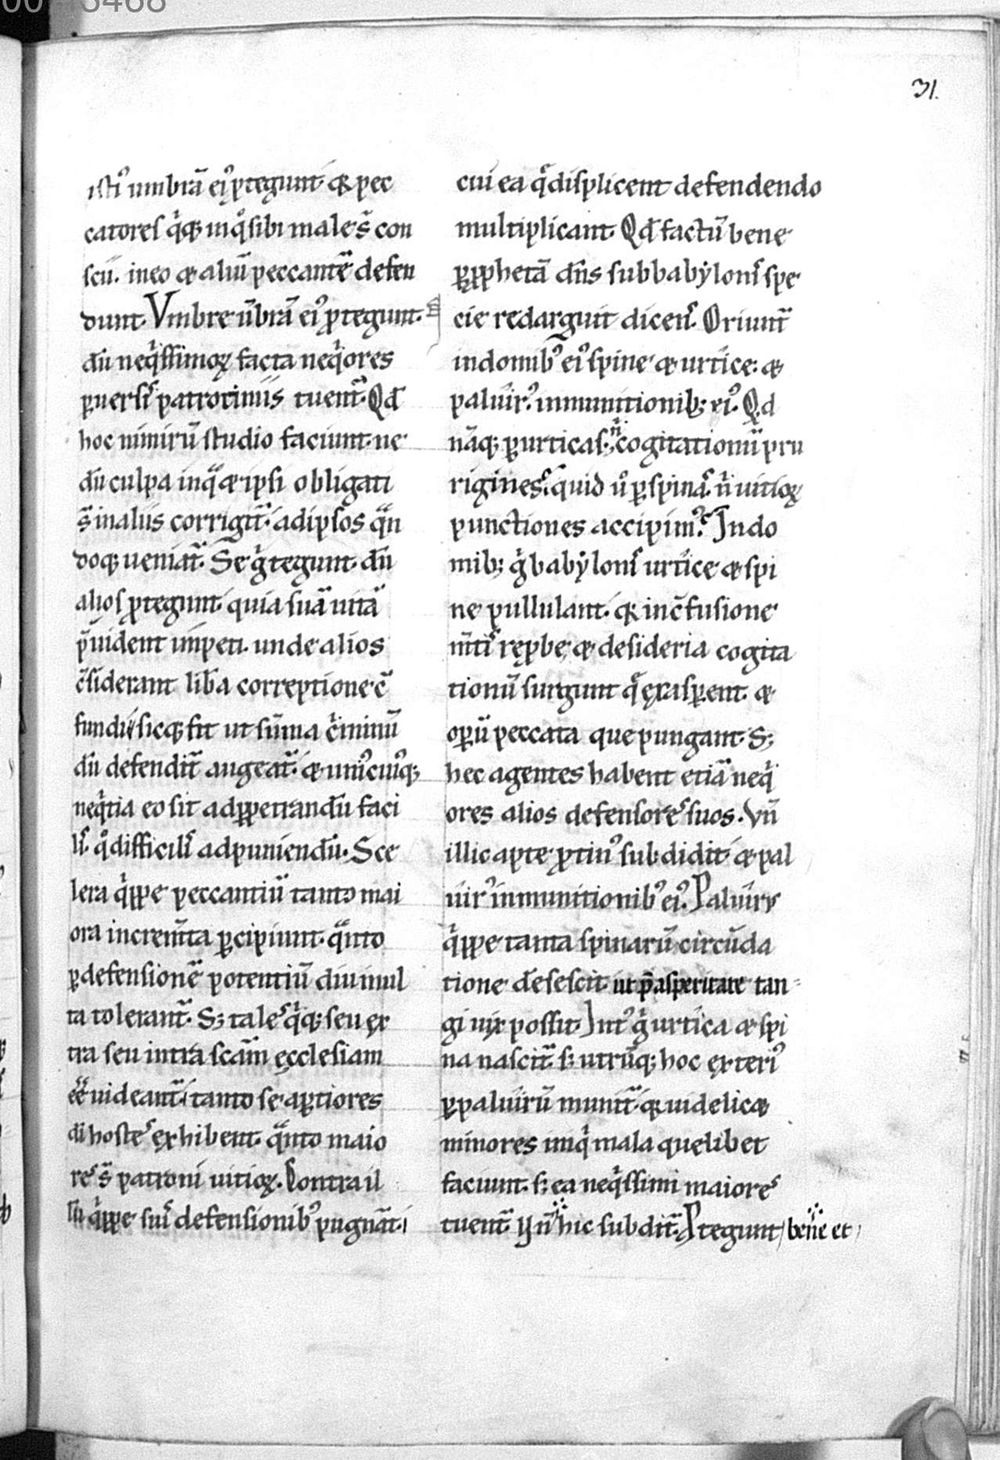 31.
isti' umbrā ei' ꝓtegunt· q̄ pec
catores q̄q; inq̊ sibi male s̄ con
scii· in eo & aliū peccantē defen
dunt· Vmbre ūbrā ei' ꝓtegunt·
dū neq̄ssimoꝝ facta neq̄ores
ꝑuersis patrociniis tuent̄· Qd̄
hoc nimirū studio faciunt· ne
dū culpa in qua & ipsi obligati
s̄ in aliis corrigit̄· ad ipsos qn̄
doq; ueniat̄· Se ḡ tegunt dū
alios ꝓtegunt· quia suā uitā
p̄uident impeti· unde alios
c̄siderant libā correptione c̄
fundi· sicq; fit ut sūma c̄minū
dū defendit̄ augeat̄· & uni'cui'q;
neq̄tia eo sit ad ꝑpetrandū faci
lis· q̊ difficilis ad puniendū· Sce
lera q̄ppe peccantiū tanto mai
ora increm̄ta ꝑcipiunt· q̄nto
ꝑ defensionē potentiū diu inul
ta tolerant̄· S; tales q̄q; seu ex
tra seu intra scām ęcclesiam
eē uideant̄· tanto se aꝑtiores
di hostes exhibent· q̄nto maio
res s̄ patroni uitioꝝ· Contra il
lū q̄ppe suis defensionib' pugnāt·
cui ea q̄ displicent defendendo
multiplicant· Qd̄ factū bene
ꝑ ꝓphetā dn̄s sub babylonis spe
cie redarguit dicens· Oriunt̄
in domib' ei' spine & urtice· &
paliur' in munitionib; ei'· Qd
nāq; ꝑ urticas· n̄ cogitationū pru
rigines· quid ū ꝑ spinas· n̄ uitioꝝ
punctiones accipim'? In do
mib; ḡ babylonis urtice & spi
ne pullulant· q̄ in c̄fusione
m̄tis rępbe & desideria cogita
tionū surgunt q̄ exasꝑent· &
oꝑū peccata que pungant· S;
hec agentes habent etiā neq̄
ores alios defensores suos· Vn̄
illic apte ꝓtin' subdidit· & pal
iur' in munitionib' ei'· Paliur'
q̄ppe tanta spinarū circūda
tione dēsescit ut p̄ asperitate tan
gi uix possit· Int' ḡ urtica & spi
na nascit̄· s; utrūq; hoc exteri'
ꝑ paliurū munit̄· q̄ uidelic&
minores iniq̄ mala quelibet
faciunt· s; ea neq̄ssimi maiores
tuent̄ Vn̄ & hic subdit̄· Ptegunt bene et